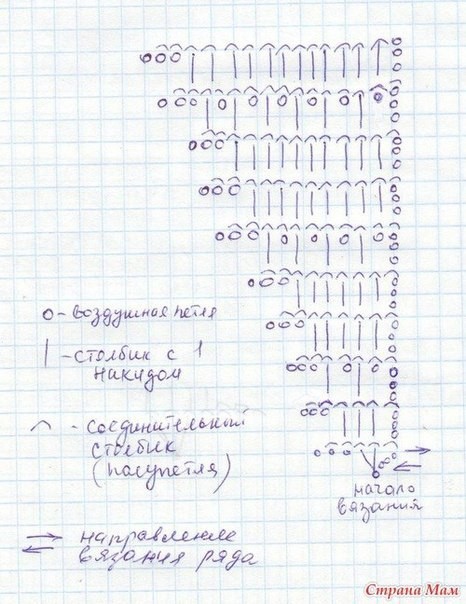 o - воздушная петля
| - столбик с 1
накидом
⌒ - соединительный
столбик
(полупетля)
начало
вязания
→ направление
← вязания ряда
Страна Мам